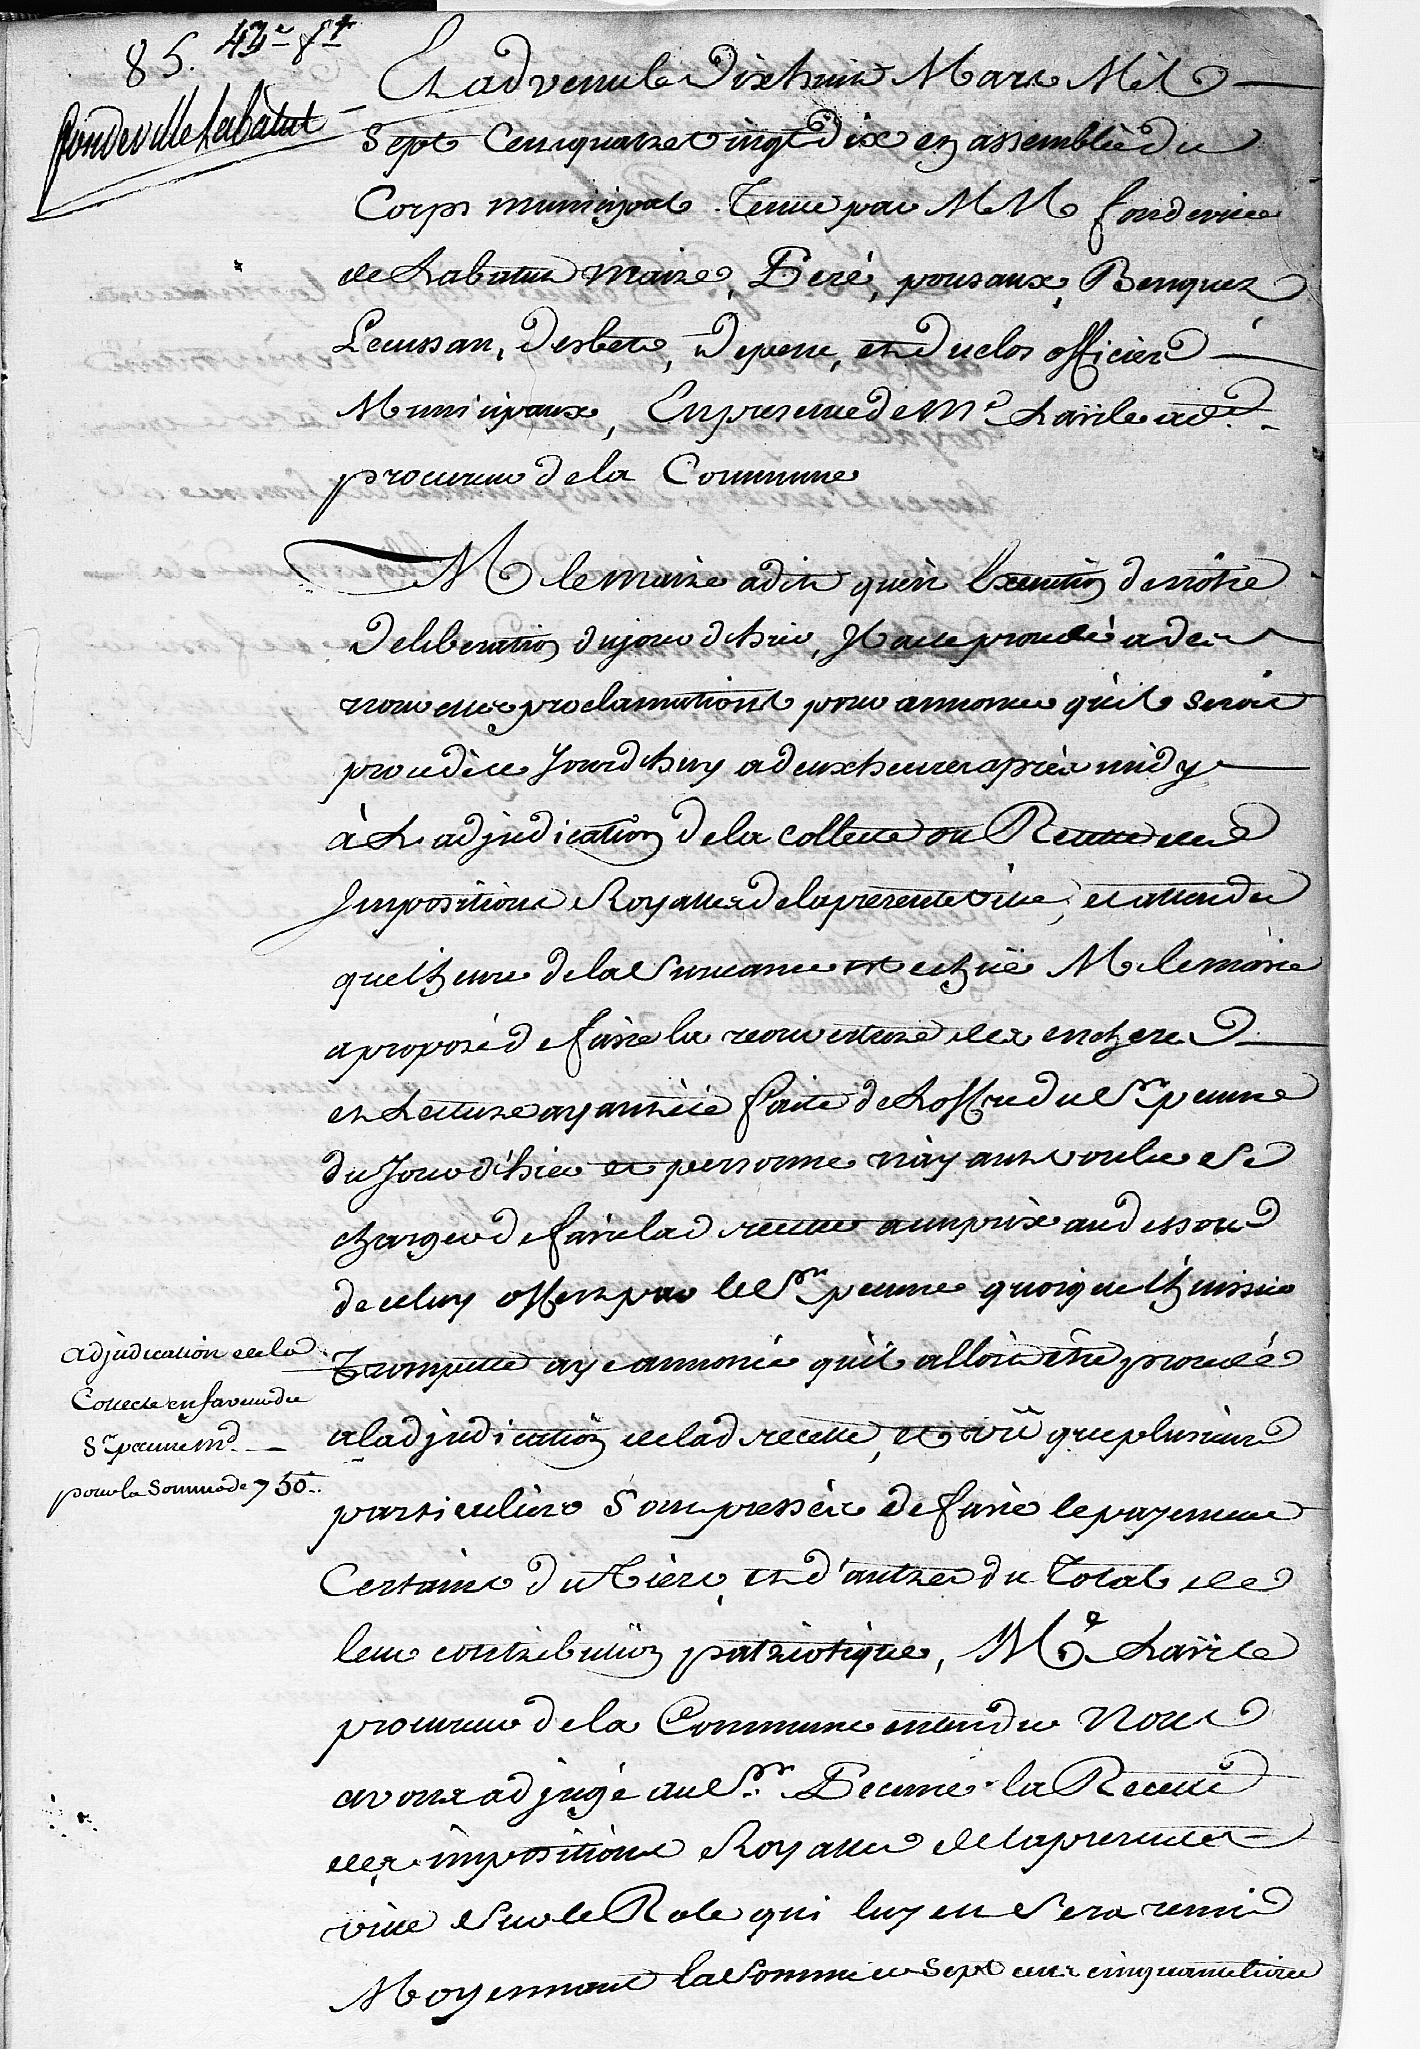 85. 43e ft
fondeville Labatut
Et advenu le Dixhuit Mars Mil
Sept Cens quatre vingt Dix en assemblée du
Corps municipal Tenue par MM fondeville
de Labatut Maire, Peré, pousaux, Benquez
Lecussan, Desbets, Depene, et duclos officiers
Municipaux, En presence de Mr Laïrle adt
procureur de la Commune
M le maire a dit qu'en Execution de notre
Deliberation du jour d'hier, Il a ete procedé a des
nouvelles proclamations pour annoncer qu'il seroit
procedé ce Jourdhuy a deux heures après midy
à L'adjudication de la collecte ou Recette des
Impositions Royalles de la presente ville, et attendu
que lheure de la Surceance est echüe M le maire
a proposé de faire la reouverture des encheres
et Lecture ayant été faite de Loffre du Sr peune
du Jour d'hier et personne n'ayant voulu se
charger de faire lad recette a un prix au dessous
de celuy offert par le Sr peune quoique lhuissier
Trompette aye annoncé qu'il alloit être procedé
a ladjudication de lad recette, et vû que plusieurs
particuliers sempressés de faire le payement
Certains du Tiers, et d'autres du Total de
leur contribution patriotique, Me Laïrle
procureur de la Commune entendu Nous
avons adjugé au Sr Peune la Recette
des impositions Royalles de la presente
ville sur le Role qui luy en sera remis
Moyennant la Somme de Sept cens cinquante livres
adjudication de la
Collecte en faveur du
Sr peune md
pour la Somme de 750.